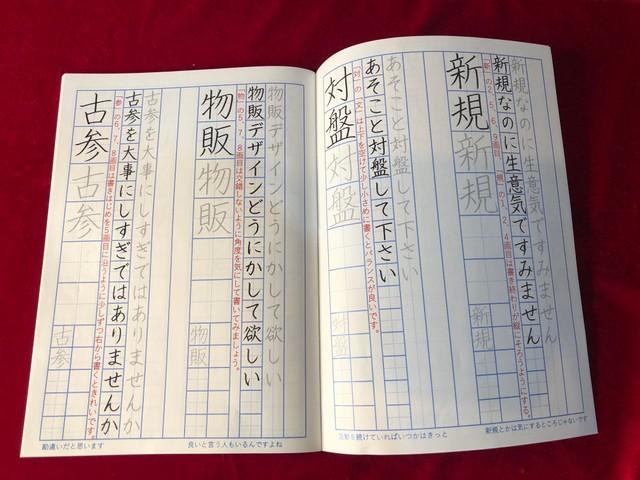 新規なのに生意気ですみません
新規なのに生意気ですみません
「新」の2、5、6、9画目、「規」の1、2、4画目は書き終わりが縦にそろうようにする。
新規
新規
新規
新規とかは気にするところじゃないです
あそこと対盤して下さい
あそこと対盤して下さい
「対」の「文」は上下を空けて少し小さめに書くとバランスが良いです。
対盤
対盤
対盤
活動を続けていればいつかはきっと
物販デザインどうにかして欲しい
物販デザインどうにかして欲しい
「物」の5、7、8画目は交錯しないように角度を気にして書いてみましょう。
物販
物販
物販
良いと言う人もいるんですよね
古参を大事にしすぎではありませんか
古参を大事にしすぎではありませんか
「参」の6、7、8画目は書きはじめを5画目に沿うように少しずつ右から書くときれいです。
古参
古参
古参
勘違いだと思います